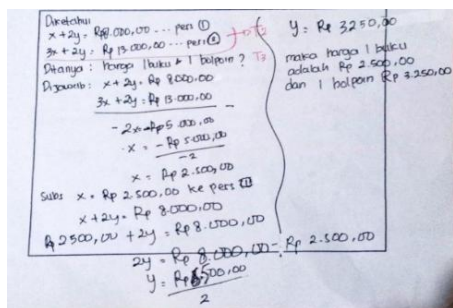 Diketahui
x + 2y = Rp 8.000,00 ... pers ①
3x + 2y = Rp 13.000,00 ... pers ②
Ditanya : harga 1 buku & 1 bolpoin ? T3
Dijawab : x + 2y = Rp 8.000,00
3x + 2y = Rp 13.000,00 -
-2x = -Rp 5.000,00
x = - Rp 5.000,00
-2
x = Rp 2.500,00
Subs x = Rp 2.500,00 ke pers ①
x + 2y = Rp 8.000,00
Rp 2500,00 + 2y = Rp 8.000,00
2y = Rp 8.000,00 - Rp 2.500,00
y = Rp 6500,00
2
y = Rp 3250,00
maka harga 1 buku
adalah Rp 2.500,00
dan 1 bolpoin Rp 3.250,00